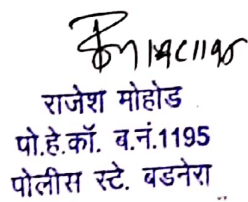 राजेश मोहोड
पो.हे.कॉ. ब.नं.1195
पोलीस स्टे. बडनेरा